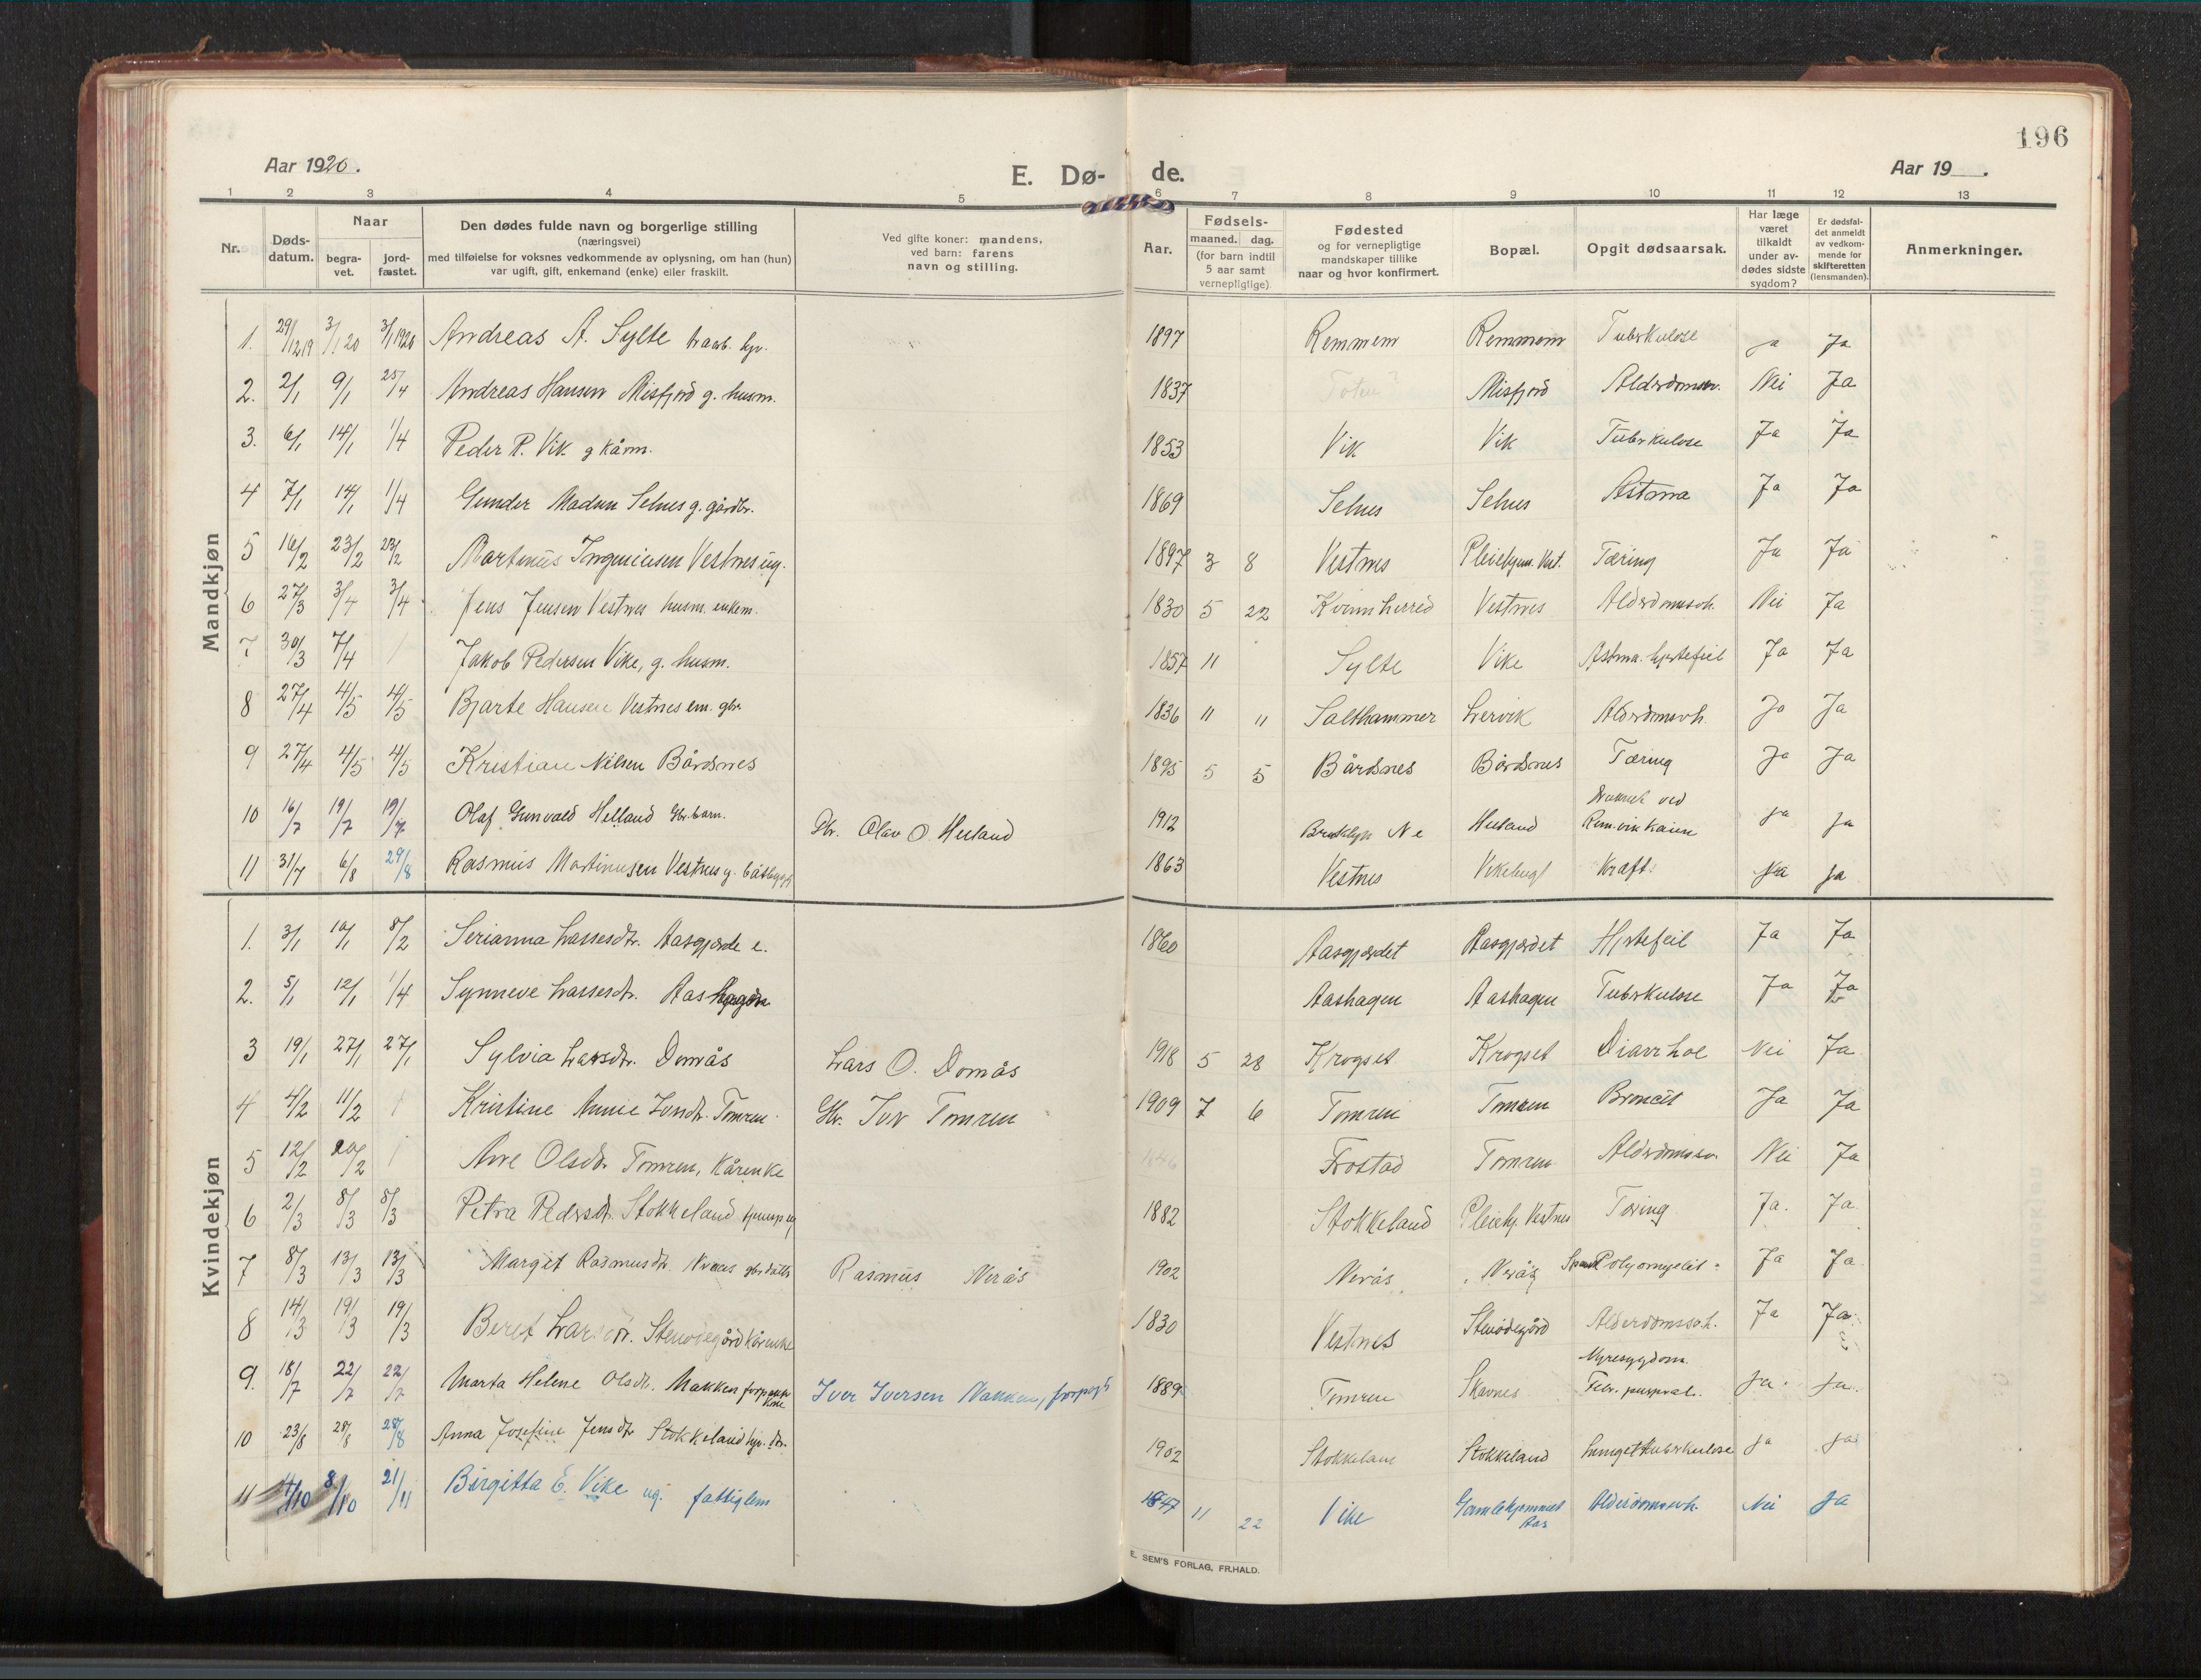 196
Aar 1920.
E. Dø- de.
Aar 19 .
1 2 3 4 5 6 7 8 9 10 11 12 13
Nr.
Døds-
datum.
Naar
begra-
vet.
jord-
fæstet.
Den dødes fulde navn og borgerlige stilling
(næringsvei)
med tilføielse for voksnes vedkommende av oplysning, om han (hun)
var ugift, gift, enkemand (enke) eller fraskilt.
Ved gifte koner: mandens,
ved barn: farens
navn og stilling.
Aar.
Fødsels-
maaned. dag.
(for barn indtil
5 aar samt
vernepligtige).
Fødested
og for vernepligtige
mandskaper tillike
naar og hvor konfirmert.
Bopæl.
Opgit dødsaarsak.
Har læge
været
tilkaldt
under av-
dødes sidste
sygdom?
Er dødsfal-
det anmeldt
av vedkom-
mende for
skifteretten
(lensmanden).
Anmerkninger.
Mandkjøn
1. 29/12 19 3/1 20 3/1 1920 Andreas A. Sylte 1897 Remmem Remmem Tuberkulose Ja Ja
2. 2/1 9/1 25/4 Andreas Hansen Misfjord g. husm. 1837 Misfjord Alderdomssv. Nei Ja
3. 6/1 14/1 1/4 Peder P. Vik g kårm. 1853 Vik Vik Tuberkulose Ja Ja
4 7/1 14/1 1/4 Gunder Madsen Selnes g. gårdbr. 1869 Selnes Selnes Astma Ja Ja
5 16/2 23/2 23/2 Martinus Vestnes ug. 1897 3 8 Vestnes Pleiehjem. Vest. Tæring Ja Ja
6 27/3 3/4 3/4 Jens Jensen Vestnes husm. enkem. 1830 5 22 Kvinnherred Vestnes Alderdomssvh. Nei Ja
7 30/3 7/4 / Jakob Pedersen Vike, g. husm. 1857 11 Sylte Vike Astma. hjertefeil Ja Ja
8 27/4 4/5 4/5 Bjarte Hansen Vestnes em. gbr. 1836 11 11 Salthammer Lervik Alderdomssvh. Ja Ja
9 27/4 4/5 4/5 Kristian Nilsen Bårdsnes 1895 5 5 Bårdsnes Bårdsnes Tæring Ja Ja
10 16/7 19/7 19/7 Olaf Gunvald Helland Gbr. barn. Gbr. Olav O. Helland 1912 Brooklyn N Helland Druknet ved
kaien Ja Ja
11 31/7 6/8 29/8 Rasmus Martinusen Vestnes g. båtbygg. 1863 Vestnes Vikebugt Kræft. Ja Ja
Kvindekjøn
1. 3/1 10/1 8/2 Serianna Lassesdtr. Aasgjerde e. 1860 Aasgjerdet Aasgjerdet Hjertefeil Ja Ja
2. 5/1 12/1 1/4 Synneve Lassesdtr. Aashagen Aashagen Aashagen Tuberkulose Ja Ja
3 19/1 27/1 27/1 Sylvia Larsdtr. Domås Lars O. Domås 1918 5 28 Krogset Krogset Diarrhoe Nei Ja
4 4/2 11/2 / Kristine Annie Iversdtr. Tomren Gbr. Iver Tomren 1909 7 6 Tomren Tomren Broncit Ja Ja
5 12/2 20/2 / Ane Olsdtr. Tomren, Kårenke Frostad Tomren Alderdomssv. Nei Ja
6 2/3 8/3 8/3 Petra Pedersdtr. Stokkeland tjenesp. ug 1882 Stokkeland Pleiehj. Vestnes Tæring Ja. Ja.
7 8/3 13/3 13/3 Margit Rasmusdtr. Neraas gbr datter Rasmus Nerås 1902 Nerås Nerås Polyomyelit Ja Ja
8 14/3 19/3 19/3 Beret Larsdtr. Stenødegård kårenke 1830 Vestnes Stenødegård Alderdomssvh. Ja Ja
9. 18/7 22/7 22/7 Marta Helene Olsdtr. Nakken kone Iver Iversen Nakken, forpagt. 1889 Tomren Skavnes Nyresygdom
Febr. puerperal. Ja. Ja.
10 23/8 28/8 28/8 Anna Josefine Jensdtr. Stokkeland 1902 Stokkeland Stokkeland Lungetuberkulose Ja Ja
11 1/10 8/10 21/11 Birgitta E. Vike ug. fattiglem 1847 11 22 Vike Gamlehjemmet
Aas Alderdomssvh. Nei Ja
E. SEM'S FORLAG, FR.HALD.